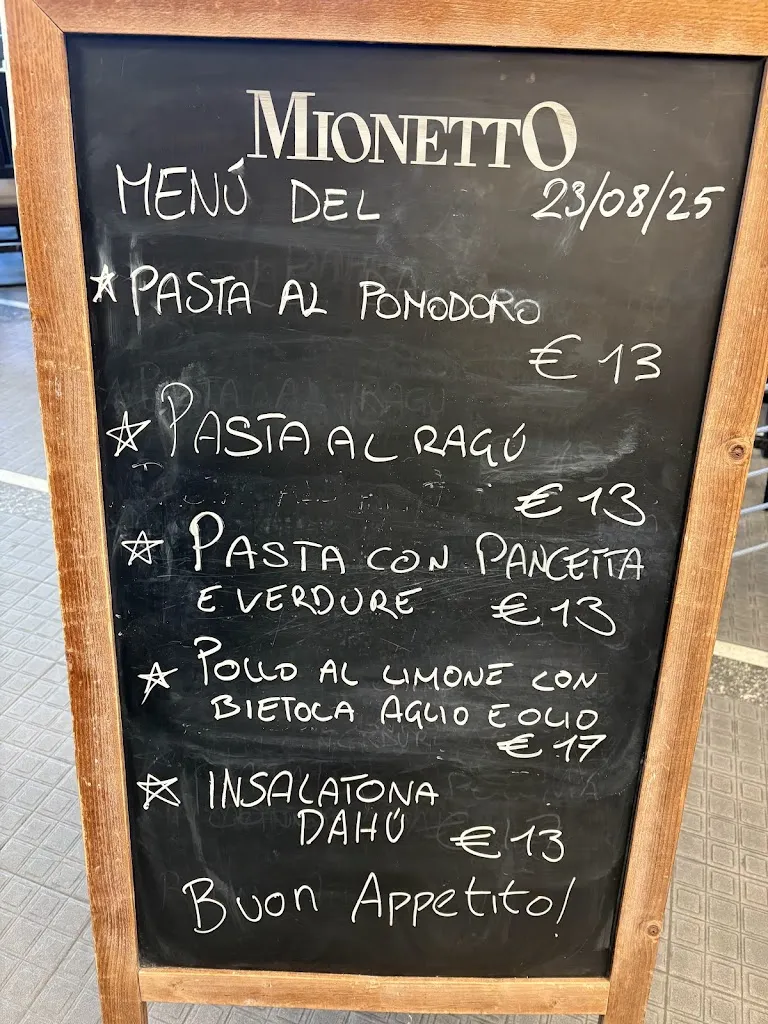 MIONETTO
MENÚ DEL 23/08/25
☆ PASTA AL POMODORO
€ 13
☆ PASTA AL RAGÚ
€ 13
☆ PASTA CON PANCETTA
E VERDURE € 13
☆ POLLO AL LIMONE CON
BIETOLA AGLIO E OLIO
€ 17
☆ INSALATONA
DAHÚ € 13
Buon Appetito!